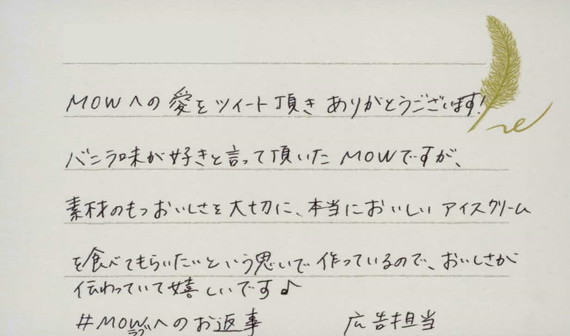 MOWへの愛をツイート頂きありがとうございます!
バニラ味が好きと言って頂いたMOWですが、
素材のもつおいしさを大切に、本当においしいアイスクリーム
を食べてもらいたいという思いで作っているので、おいしさが
伝わっていて嬉しいです♪
#MOWラブへのお返事 広告担当